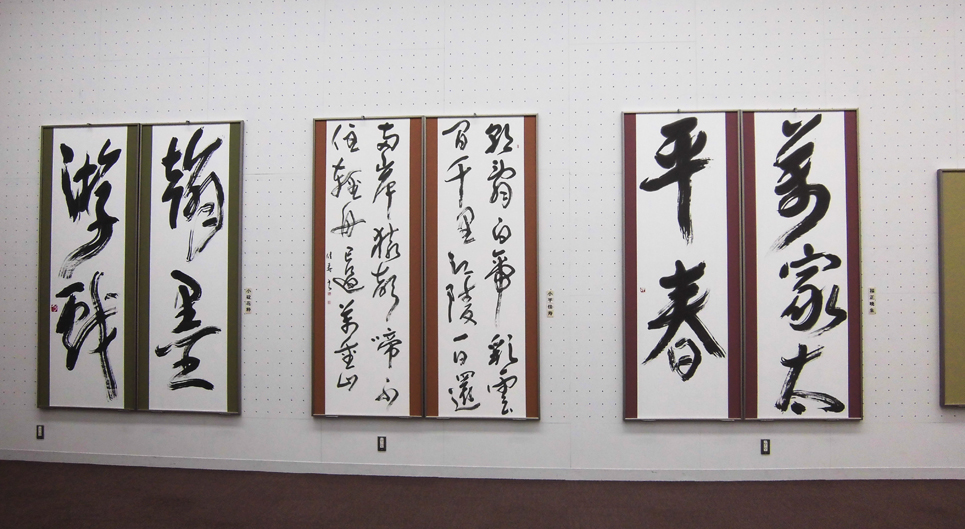 萬家太
平春
朝辭白帝彩雲
間千里江陵一日還
兩岸猿聲啼不
住輕舟已過萬重山
翰墨
游戲